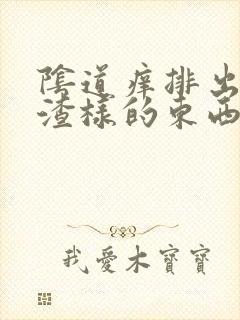 陰道痒排出
渣樣的東西
我愛木寶寶